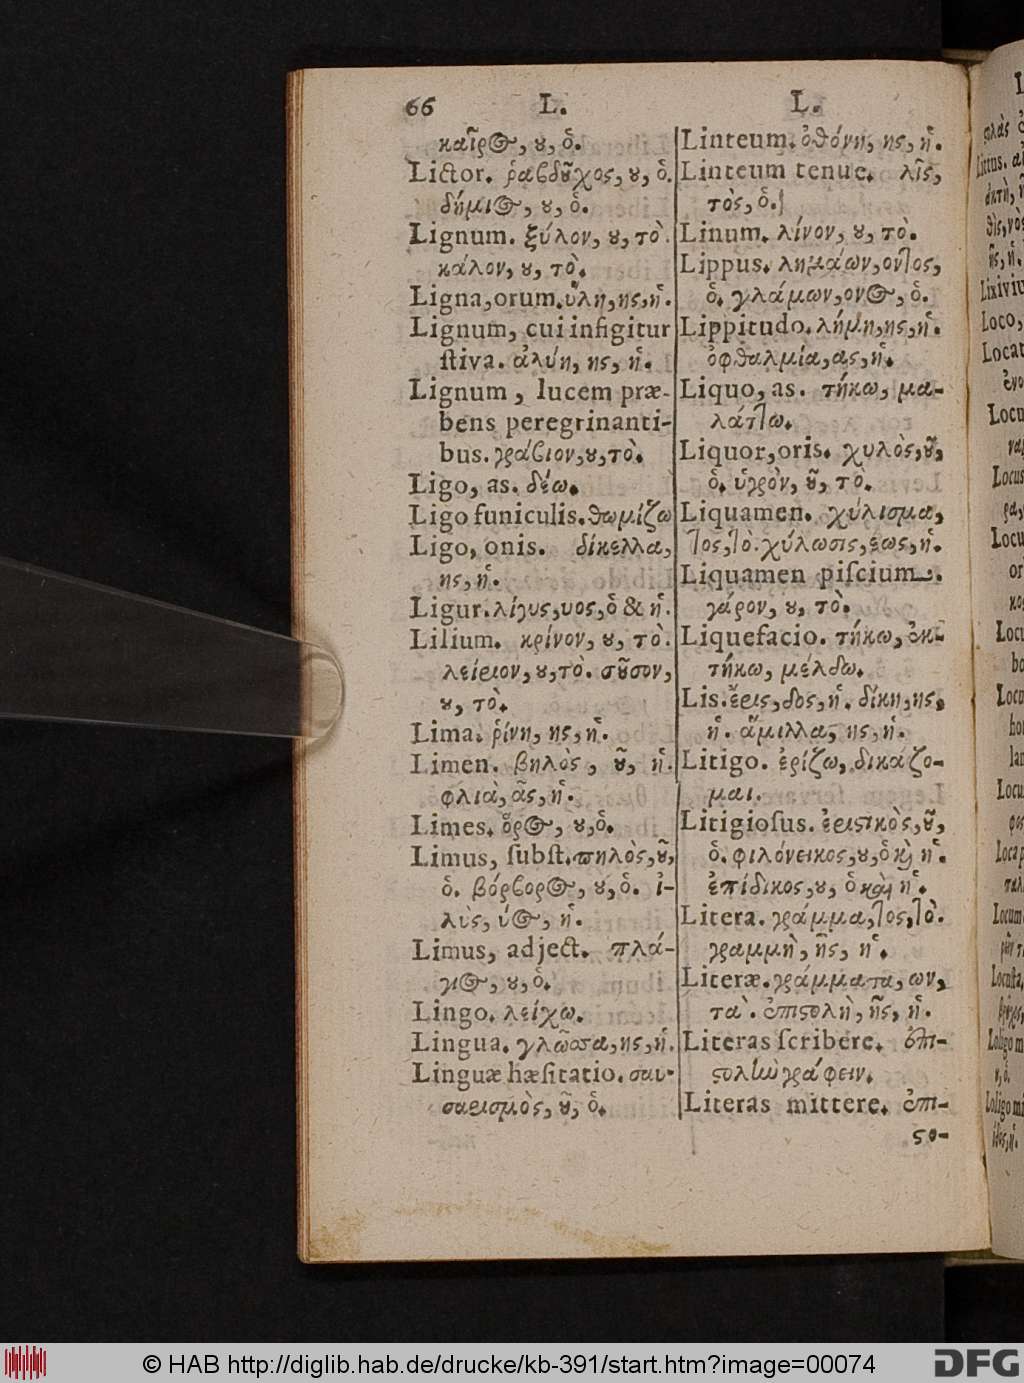 66 L. L.
καῖρος, ου, ὁ.
Lictor. ῥαβδοῦχος, ου, ὁ.
δήμιος, ου, ὁ.
Lignum. ξύλον, ου, τὸ.
κάλον, ου, τὸ.
Ligna, orum. ὕλη, ης, ἡ.
Lignum, cui infigitur
ſtiva. ἀλύη, ης, ἡ.
Lignum, lucem præ-
bens peregrinanti-
bus. γράβιον, ου, τὸ.
Ligo, as. δέω.
Ligo funiculis. θωμίζω
Ligo, onis. δίκελλα,
ης, ἡ.
Ligur. λίγυς, υος, ὁ & ἡ.
Lilium. κρίνον, ου, τὸ.
λείριον, ου, τὸ. σοῦσον,
ου, τὸ.
Lima. ῥίνη, ης, ἡ.
Limen. βηλὸς, οῦ, ἡ.
φλιὰ, ᾶς, ἡ.
Limes. ὅρος, ου, ὁ.
Limus, ſubſt. πηλὸς, οῦ,
ὁ. βόρβορος, ου, ὁ. ἰ-
λὺς, ύος, ἡ.
Limus, adject. πλά-
γιος, ου, ὁ.
Lingo. λείχω.
Lingua. γλῶσσα, ης, ἡ.
Linguæ hæſitatio. σαυ-
σαρισμὸς, οῦ, ὁ.
Linteum. ὀθόνη, ης, ἡ.
Linteum tenue. λῖς,
τὸς, ὁ.
Linum. λίνον, ου, τὸ.
Lippus. λημάων, οντος,
ὁ. γλάμων, ονος, ὁ.
Lippitudo. λήμη, ης, ἡ.
ὀφθαλμία, ας, ἡ.
Liquo, as. τήκω, μα-
λάττω.
Liquor, oris. χυλὸς, οῦ,
ὁ. ὑγρὸν, οῦ, τὸ.
Liquamen. χύλισμα,
τος, τὸ. χύλωσις, έως, ἡ.
Liquamen piſcium.
γάρον, ου, τὸ.
Liquefacio. τήκω, ἐκ-
τήκω, μέλδω.
Lis. ἔρις, δος, ἡ. δίκη, ης,
ἡ. ἅμιλλα, ης, ἡ.
Litigo. ἐρίζω, δικάζο-
μαι.
Litigioſus. ἐριστικὸς, οῦ,
ὁ. φιλόνεικος, ου, ὁ καὶ ἡ.
ἐπίδικος, ου, ὁ καὶ ἡ.
Litera. γράμμα, τος, τὸ.
γραμμὴ, ῆς, ἡ.
Literæ. γράμματα, ων,
τα. ἐπιστολὴ, ῆς, ἡ.
Literas ſcribere. ἐπι-
στολὴν γράφειν.
Literas mittere. ἐπι-
στο-
© HAB http://diglib.hab.de/drucke/kb-391/start.htm?image=00074
DFG